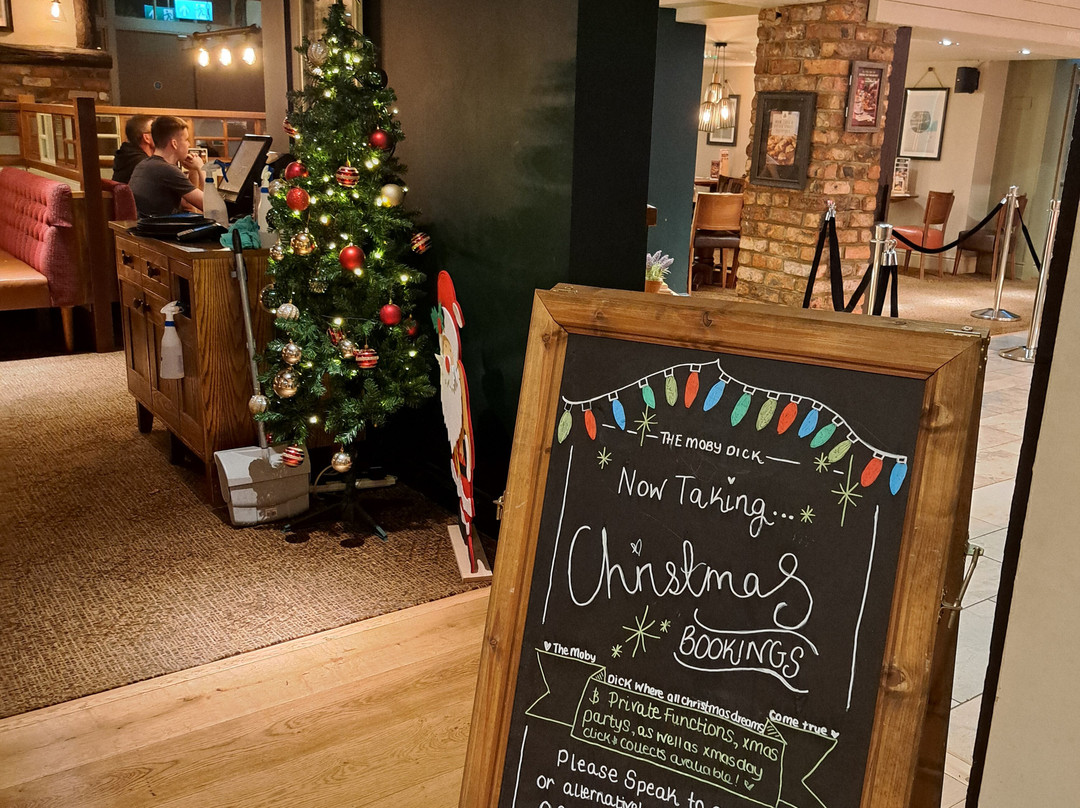 THE MOBY DICK
Now Taking...
Christmas
BOOKINGS
The Moby
Dick where all christmas dreams
come true
& Private Functions, xmas
partys, as well as xmas day
click & collects available!
Please Speak to
or alternativel